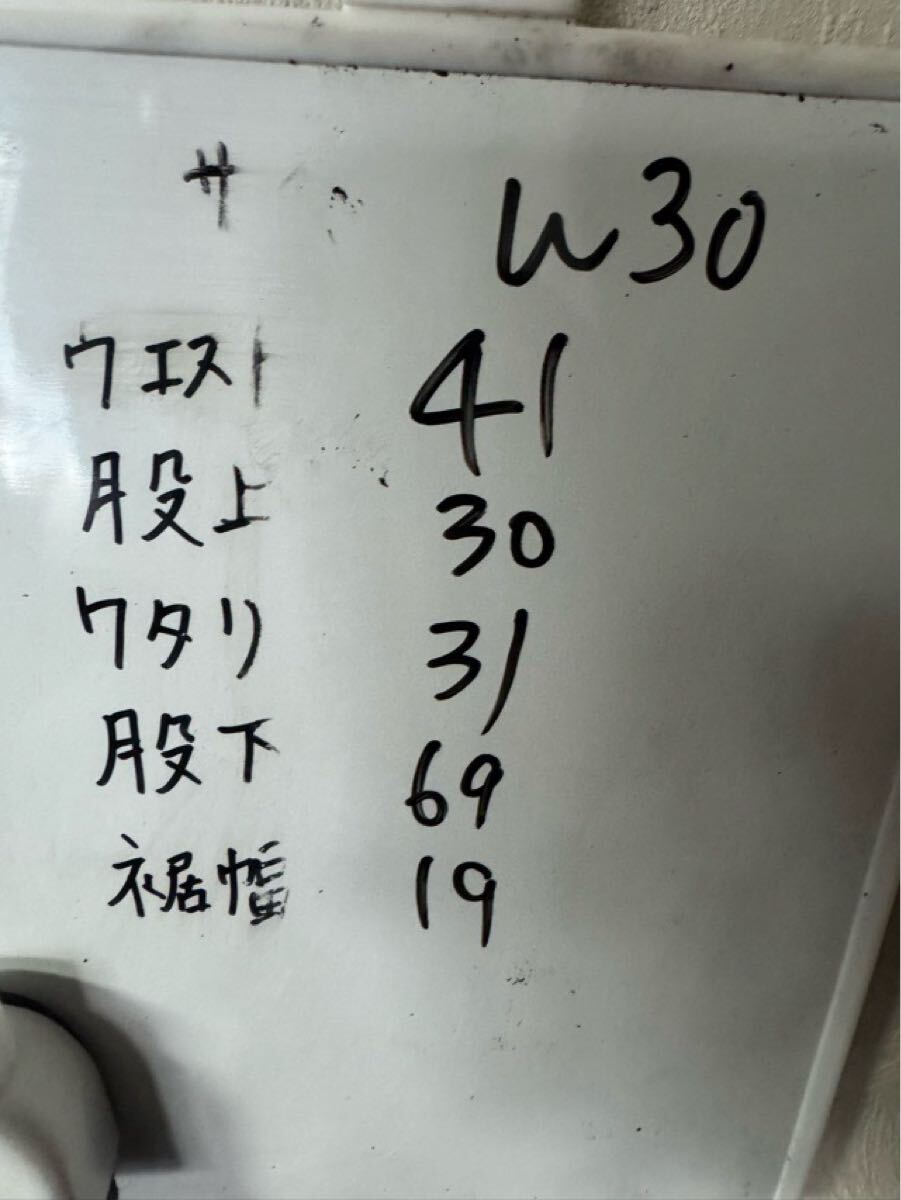 サ W30
ウエスト 41
股上 30
ワタリ 31
股下 69
裾幅 19